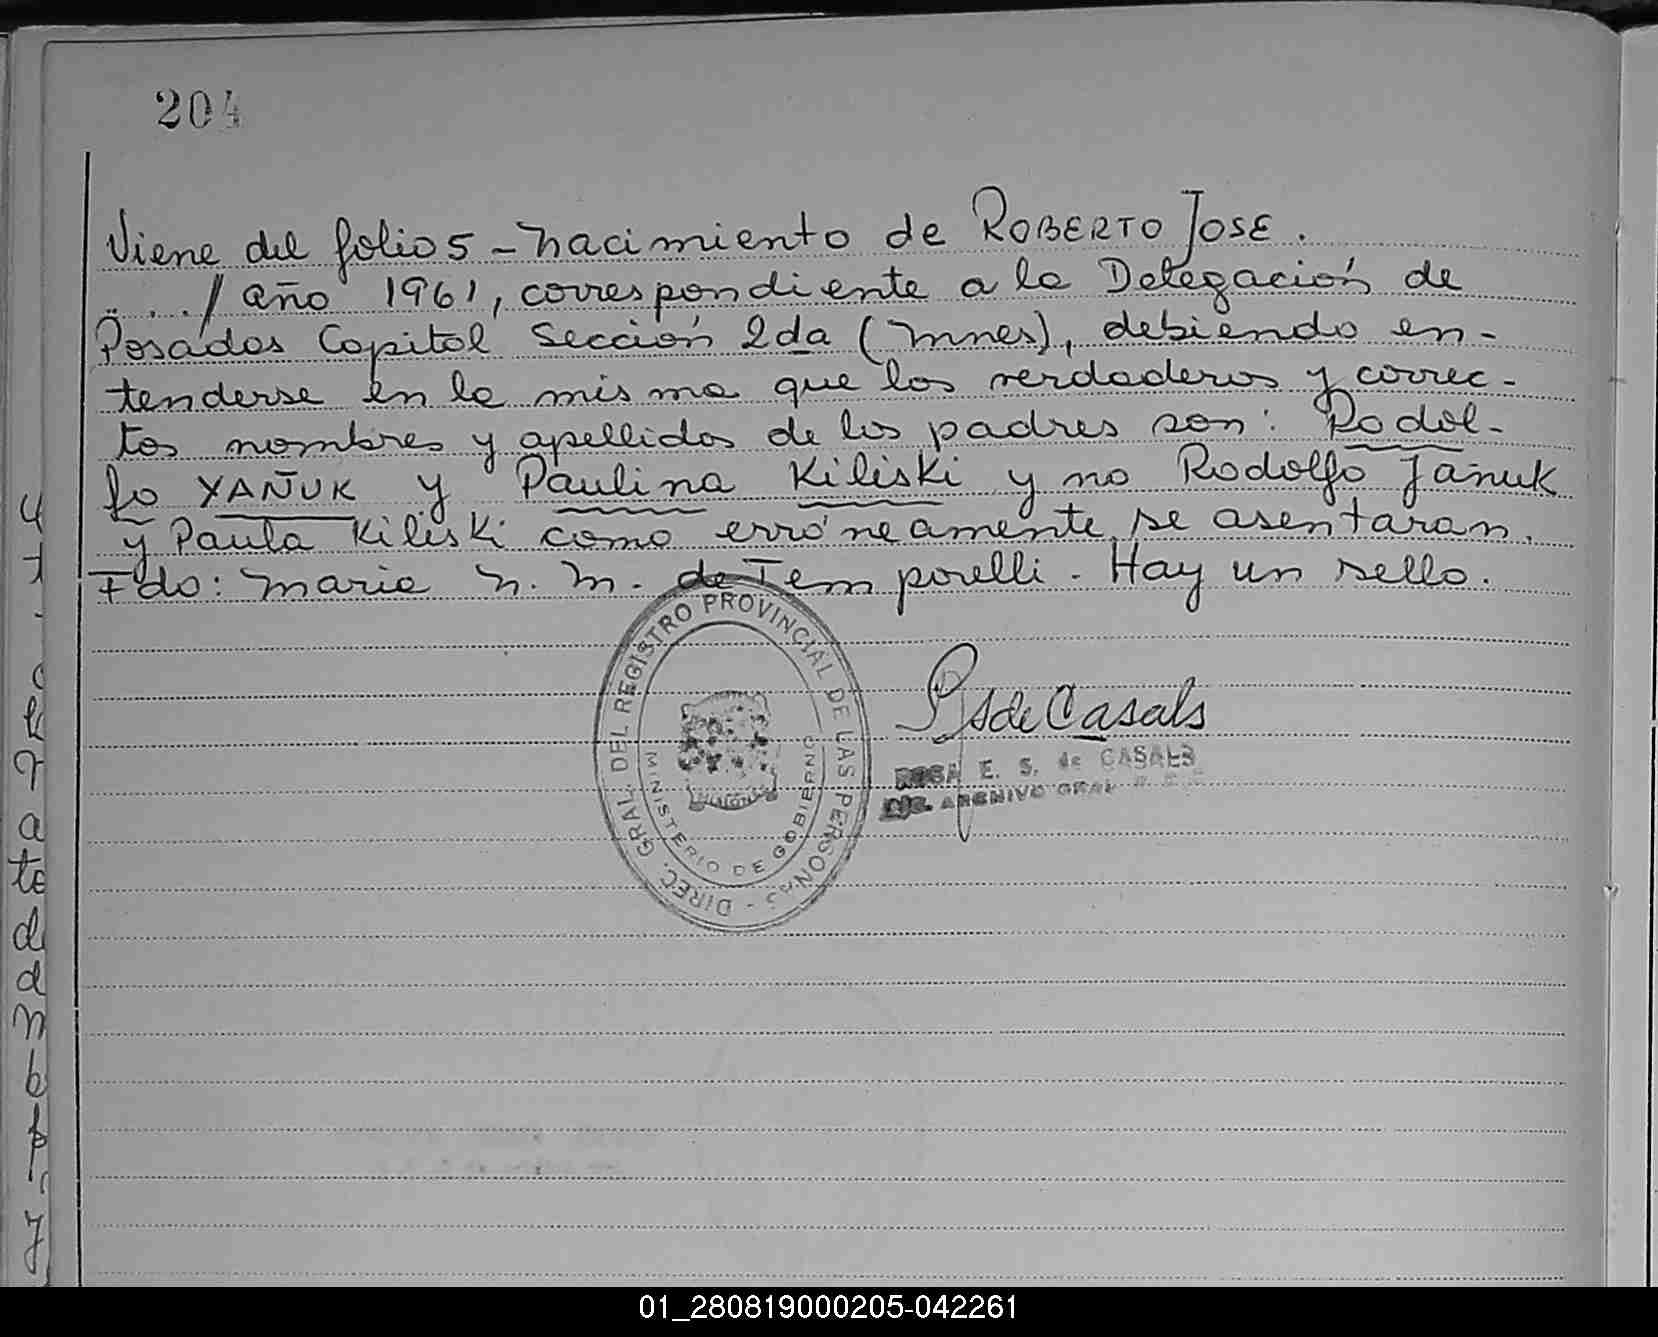 204
Viene del folio 5 - nacimiento de ROBERTO JOSE.
.. . . / año 1961, correspondiente a la Delegación de
Posadas Capital Sección 2da (Mnes), debiendo en-
tenderse en la misma que los verdaderos y correc-
tos nombres y apellidos de los padres son: Rodol-
fo YAÑUK y Paulina Kiliski y no Rodolfo Jañuk
y Paula Kiliski como erróneamente se asentaran.
Fdo: Maria N. M. de Temporelli - Hay un sello.
DIREC. GRAL. DEL REGISTRO PROVINCIAL DE LAS PERSONAS -
MINISTERIO DE GOBIERNO
RSde Casals
ROSA E. S. de CASALS
ARCHIVO GRAL
01_280819000205-042261